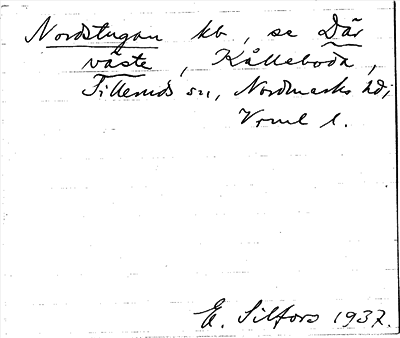 Nordstugan kb, se Där
väste, Kålleboda,
Tillemds sn, Nordmarks hd;
Vrml l.
E. Silfors 1937.